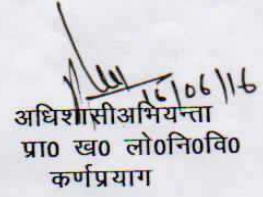 16/06/16
अधिशासीअभियन्ता
प्रा0 ख0 लो0नि0वि0
कर्णप्रयाग